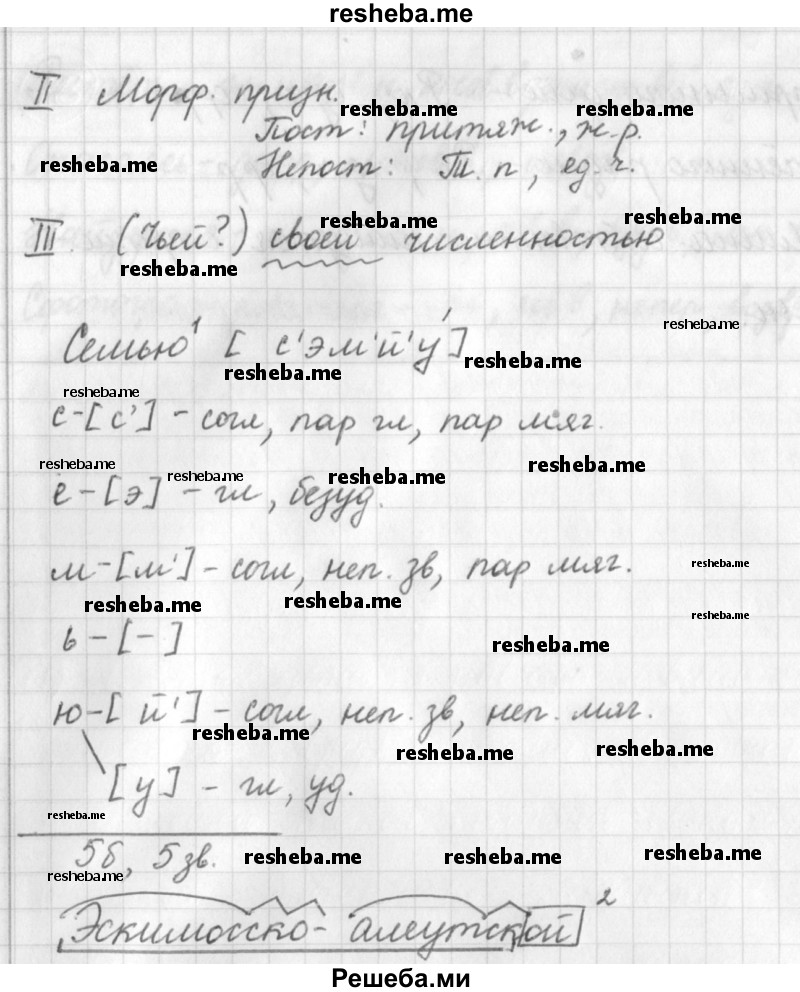 resheba.me
II Морф. призн.
resheba.me resheba.me
Пост: притяж., ж.р.
resheba.me Непост: Т.п, ед.ч.
resheba.me resheba.me
III. (Чьей?) своей численностью
resheba.me
resheba.me
Семью¹ [с'эм'й'у́]
resheba.me resheba.me
resheba.me
с-[с'] - согл, пар гл, пар мяг.
resheba.me resheba.me resheba.me resheba.me
е-[э] - гл, безуд.
м-[м'] - согл, неп. зв, пар мяг. resheba.me
resheba.me resheba.me resheba.me
ь-[-] resheba.me
ю-[й'] - согл, неп. зв, неп. мяг.
resheba.me resheba.me resheba.me
[у] - гл, уд.
resheba.me
5б, 5 зв. resheba.me resheba.me resheba.me
resheba.me
Эскимосско-алеутской²
Решеба.ми